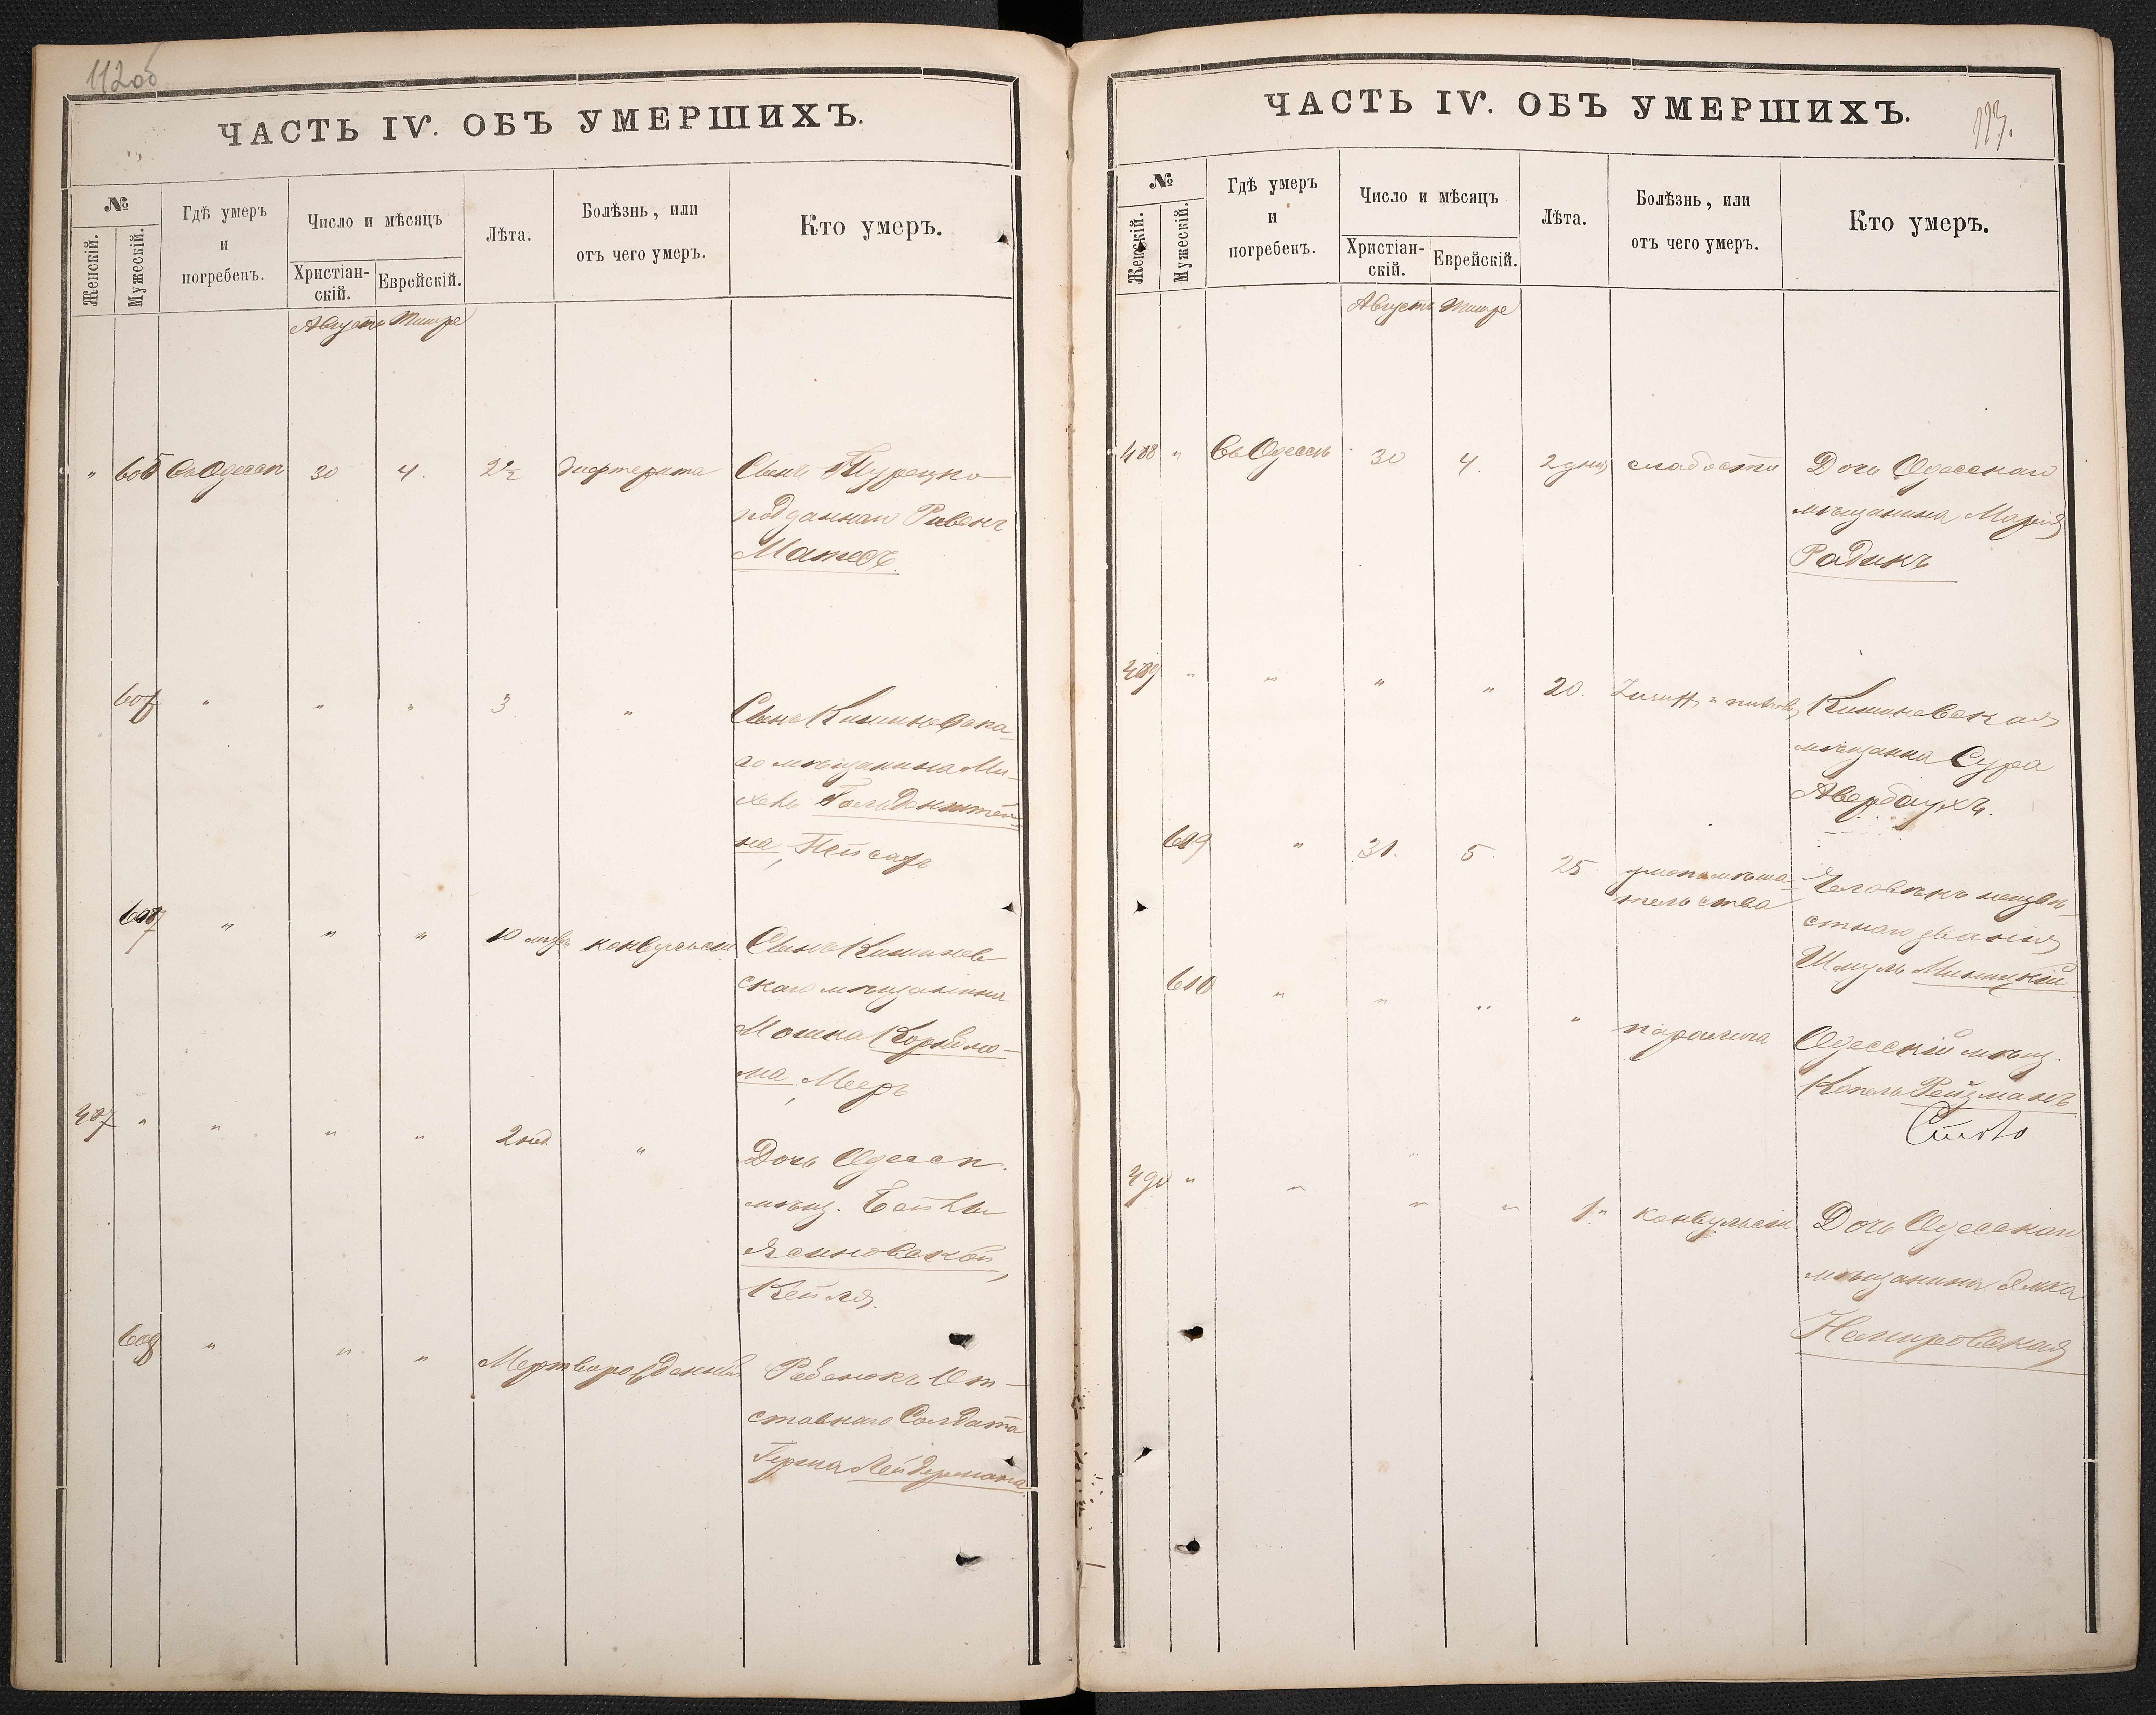 112об
ЧАСТЬ IV. ОБЪ УМЕРШИХЪ.
№
Женскій.
Мужескій.
Гдѣ умеръ
и
погребенъ.
Число и мѣсяцъ
Христіан-
скій.
Еврейскій.
Лѣта.
Болѣзнь, или
отъ чего умеръ.
Кто умеръ.
Августъ Тишре
" 605 Въ Одессѣ 30 4. 2½ дифтерита Сынъ Турецко
подданнаго Рувенъ
" " " 3 " Сынъ Кишиневска-
го мѣщанина Ми-
хеля Гольденштей-
на, Пейсахъ
607 " " " 10 мѣс. конвульсіи Сынъ Кишинев
скаго мѣщанина
Мошка
на, Мееръ
487 " " " " 2 нед. " Дочь Одесск.
мѣщ. Бейлы
Ясиновской,
Кейля.
608 " " " Мертворожденный Ребенокъ От-
ставнаго Солдата
Герша Лейдермана
113.
ЧАСТЬ IV. ОБЪ УМЕРШИХЪ.
№
Женскій.
Мужескій.
Гдѣ умеръ
и
погребенъ.
Число и мѣсяцъ
Христіан-
скій.
Еврейскій.
Лѣта.
Болѣзнь, или
отъ чего умеръ.
Кто умеръ.
Августъ Тишре
488 " Въ Одессѣ 30 4. 2 дня слабости Дочь Одесскаго
мѣщанина Марія
Радикъ
489 " " " " 20. Кишиневская
мѣщанка Сура
Авербаухъ.
609 " 31. 5. 25. умопомѣша-
тельства Человѣкъ неизвѣ-
стнаго званія
Шмуль
610 " " " " паралича Одесскій мѣщ.
Копель Рейзманъ
490 " " " " 1. " конвульсіи Дочь Одесскаго
мѣщанина
Немировская